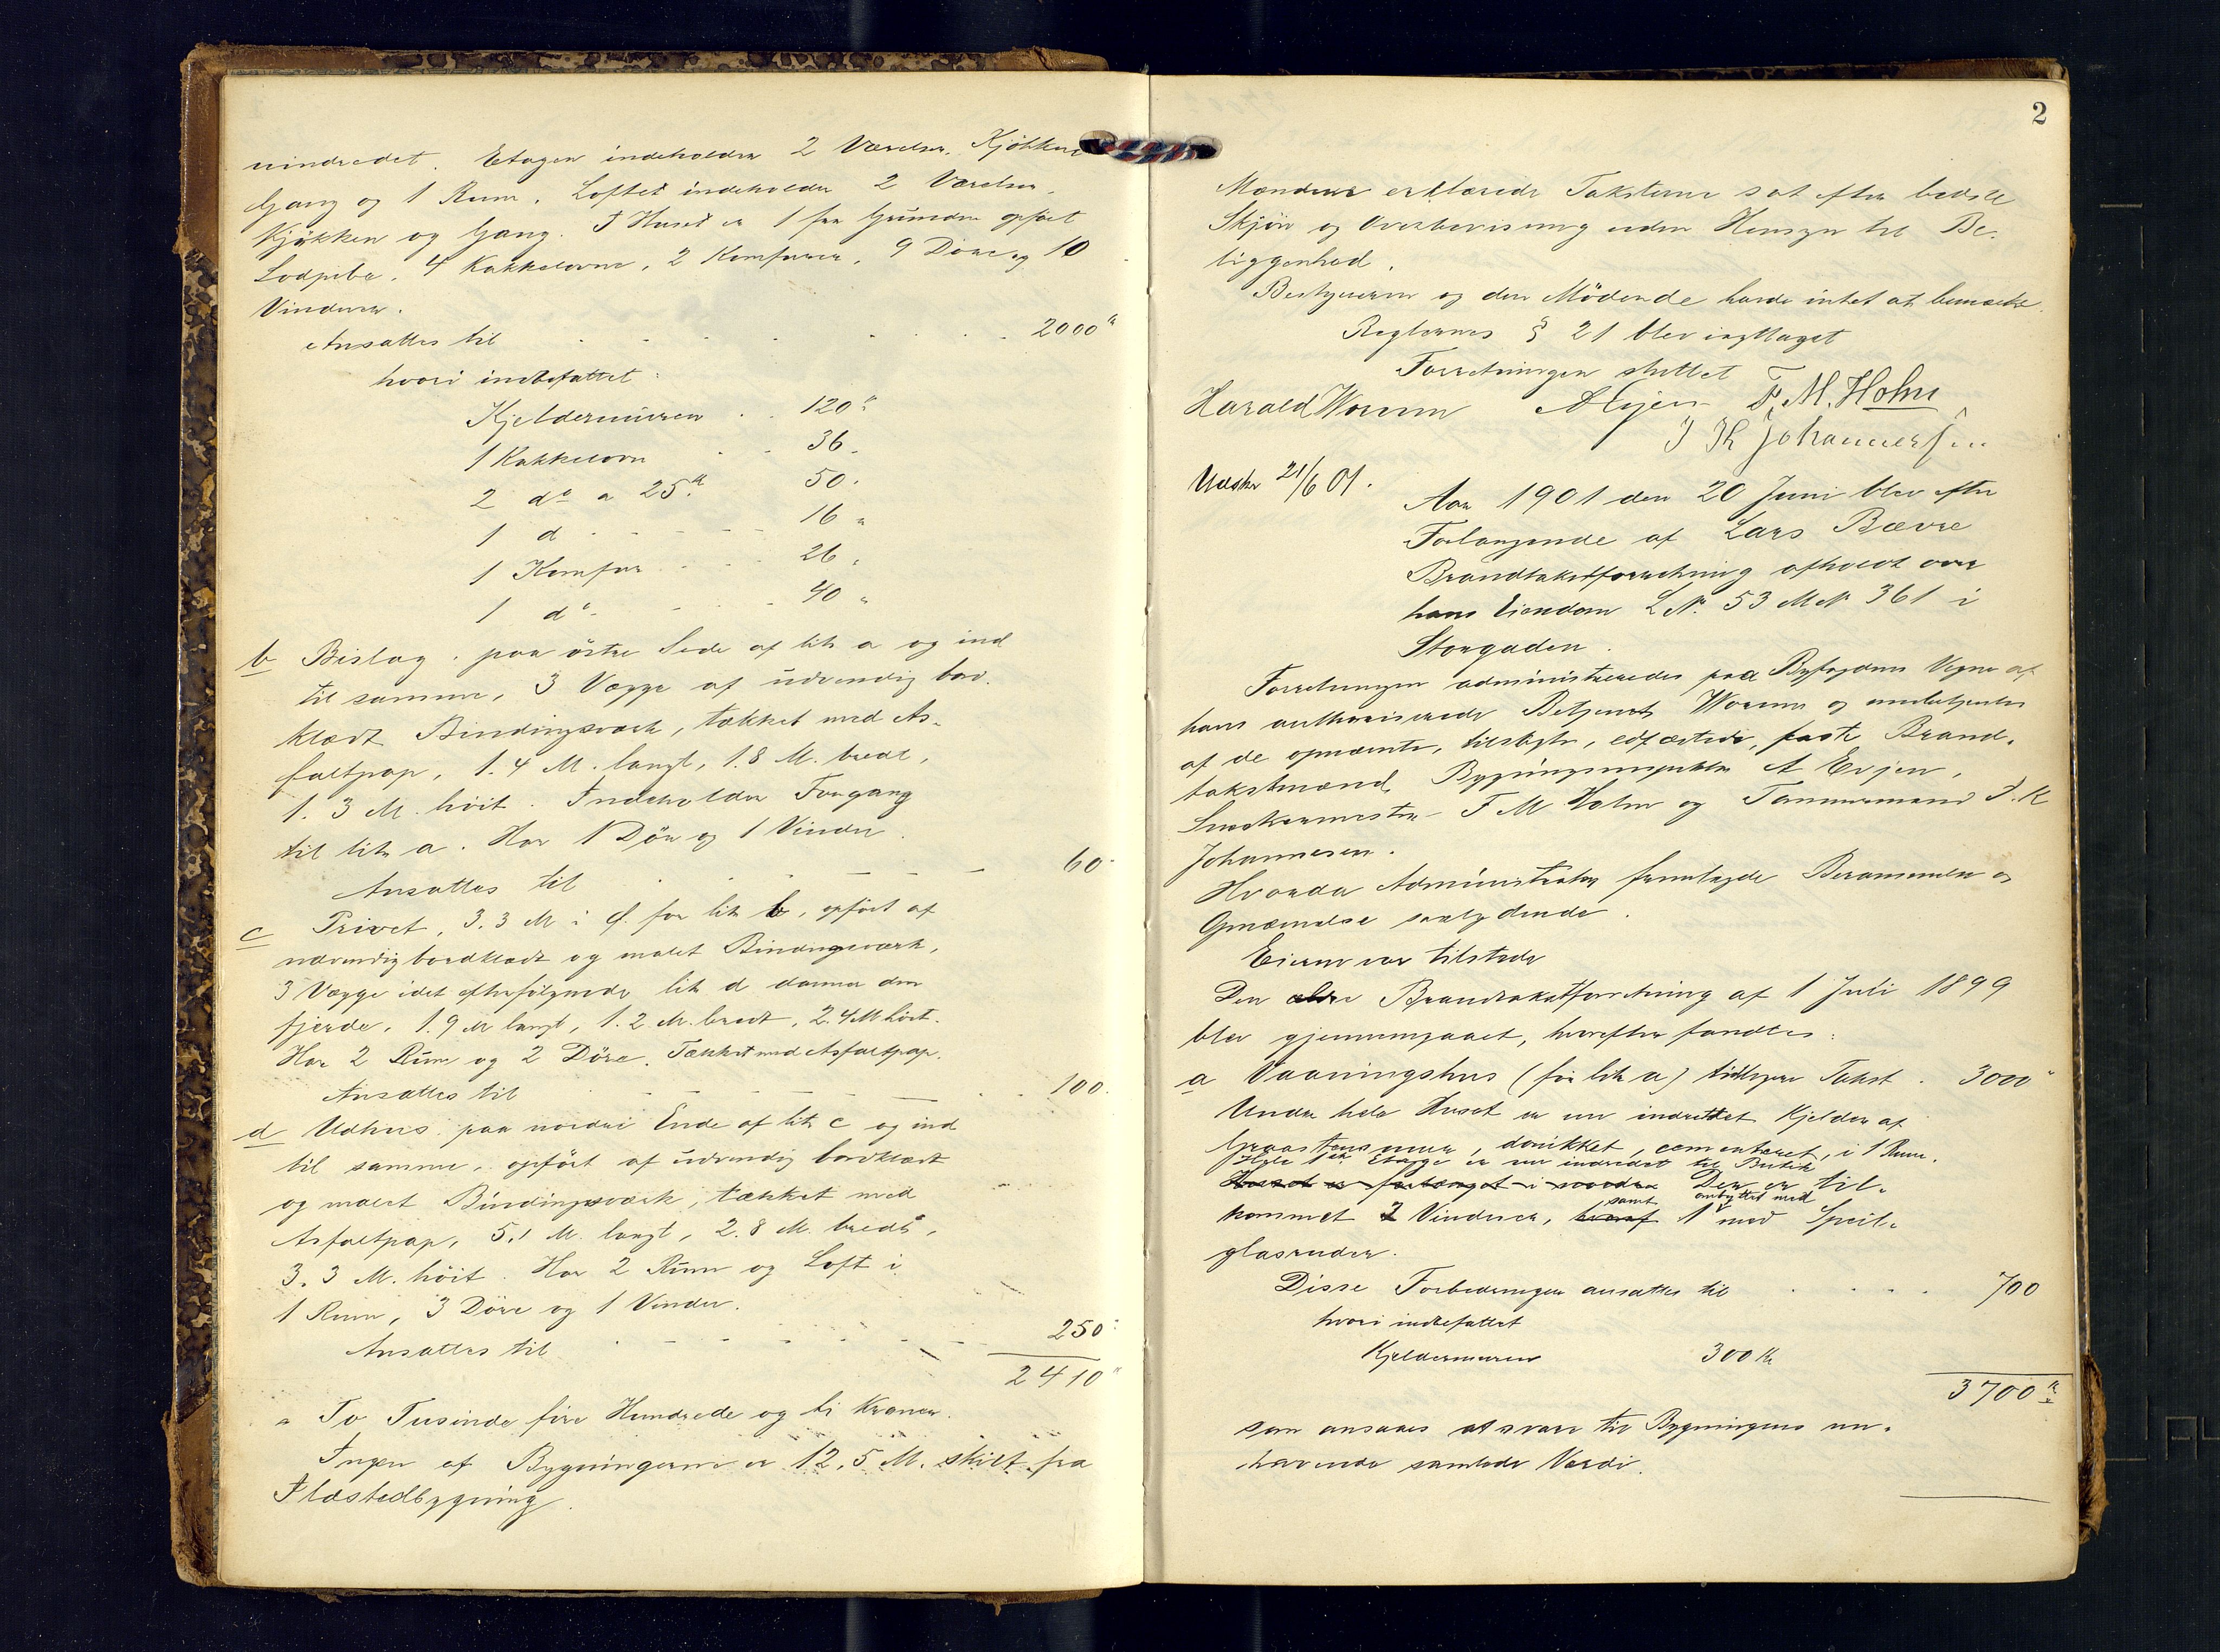 uindredet. Etagen indeholder 2 Værelser, Kjökken
Gang og 1 Rum. Loftet indeholder 2 Værelser,
Kjökken og Gang. I Huset er 1 fra Grunden opfört
Lodpibe, 4 Kakkelovne, 2 Komfurer, 9 Döre og 10
Vinduer.
Ansattes til 2000 "
hvori indbefattet:
Kjeldermuren 120 "
1 Kakkelovn 36 "
2 do a 25 " 50 "
1 d 16 "
1 Komfur 26 "
1 do 40 "
b Bislag: paa östre Side af litr a og ind
til samme, 3 Vægge af udvendig bord-
klædt Bindingsværk, tækket med As-
faltpap, 1.4 M. langt, 1.8 M. bredt,
1.3 M. höit. Indeholder Forgang
til litr a. Har 1 Dör og 1 Vindu.
Ansattes til 60 "
c Privet, 3.3 M i Ö. for litr b, opfört af
udvendig bordklædt og malet Bindingsværk,
3 Vægge idet efterfölgende litr d danner den
fjerde, 1.9 M langt, 1.2 M. bredt, 2.4 M höit.
Har 2 Rum og 2 Döre. Tækket med Asfaltpap.
Ansattes til 100.
d Udhus: paa nordre Ende af litr c og ind
til samme, opfört af udvendig bordklædt
og malet Bindingsværk, tækket med
Asfaltpap, 5.1 M. langt, 2.8 M. bredt,
3.3 M. höit. Har 2 Rum og Loft i
1 Rum, 3 Döre og 1 Vindu.
Ansattes til 250 "
2410 "
= To Tusinde fire Hundrede og ti Kroner.
Ingen af Bygningerne er 12.5 M. skilt fra
Ildstedbygning.
2
Mændene erklærede Taksterne sat efter bedste
Skjön og Overbevisning uden Hensyn til Be-
liggenhed.
Bestyreren og den Mödende havde intet at bemærke.
Reglernes § 21 blev iagttaget
Forretningen sluttet
Harald Worum A Evjen F. M. Holm
J K Johannessen
Udskr 21/6 01.
Aar 1901 den 20 Juni blev efter
Forlangende af Lars Bævre
Brandtakstforretning afholdt over
hans Eiendom L N. 53 M N 361 i
Storgaden.
Forretningen administreredes paa Byfogdens Vegne af
hans authoriserede Betjent Worum og
af de opnævnte, tilsagte, edfæstede, faste Brand-
takstmænd Bygningsinspektör A Evjen,
Snedkermester F M Holm og Tømmermand J. K
Johannesen.
Hvorda Administrator fremlagde Berammelse og
Opnævnelse saalydende.
Eieren var tilstede
Den ældre Brandtakstforretning af 1 Juli 1899
blev gjennemgaaet, hvorefter fandtes:
a Vaaningshus (för litr a) tidligere Takst. 3000 "
Under hele Huset er nu indrettet Kjelder af
Graastensmur, donikket, cementeret, i 1 Rum.
Hele 1ste Etage er nu indredet til Butik
Huset er forlænget i nordre Der er til-
samt ombyttet med
kommet 2 Vinduer, hvoraf 1 med Speil-
glasruder.
Disse Forbedringer ansattes til 700
hvori indbefattet
Kjeldermuren 300 Kr
3700 Kr
som ansaaes at svare til Bygningens nu-
havende samlede Værdi.